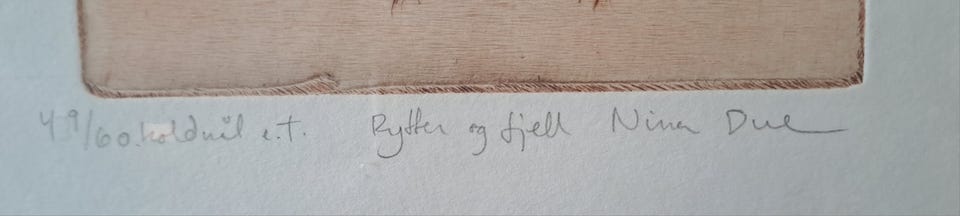 49/60. koldnål e.t. Rytter og fjell Nina Due